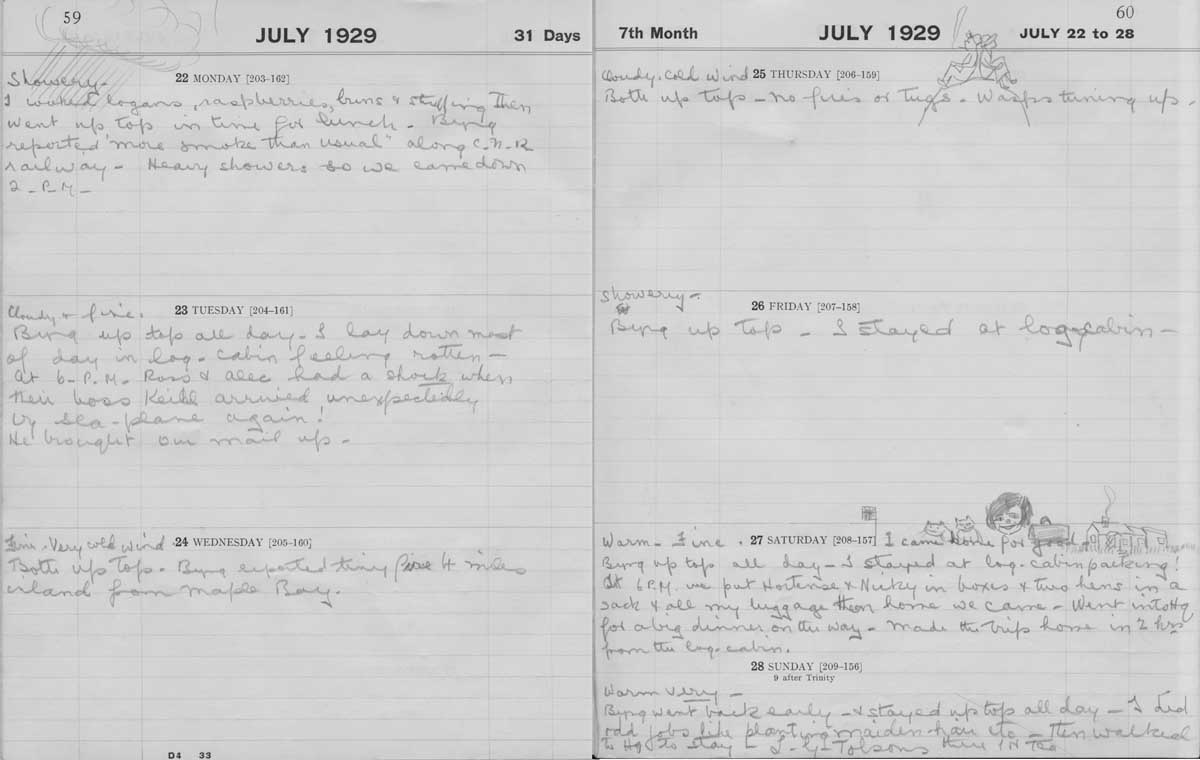 59
JULY 1929
31 Days
22 MONDAY [203-162]
Showery-
I worked logans, raspberries, buns & stuffing Then
went up top in time for lunch - Byng
reported "more smoke than usual" along C.N.R
railway - Heavy showers so we came down
2-P.M-
23 TUESDAY [204-161]
Cloudy & fine.
Byng up top all day - I lay down most
of day in log-cabin feeling rotten -
At 6-P.M. Ross & Alec had a shock when
their boss arrived unexpectedly
by sea-plane again!
He brought our mail up -
24 WEDNESDAY [205-160]
Fine - Very cold wind
Both up top - Byng reported tiny fire 4 miles
inland from Maple Bay.
D4 33
60
7th Month
JULY 1929
JULY 22 to 28
25 THURSDAY [206-159]
Cloudy. Cold wind
Both up top - no fires or tugs - Wasps tuning up.
26 FRIDAY [207-158]
Showery -
Byng up top - I stayed at log-cabin -
27 SATURDAY [208-157]
Warm - Fine. I came home for good
Byng up top all day - I stayed at log-cabin packing!
At 6 P.M. we put Hortense & Nicky in boxes & two hens in a
sack & all my luggage then home we came - Went into Hq
for a big dinner on the way - Made the trip home in 2 hrs
from the log-cabin.
28 SUNDAY [209-156]
9 after Trinity
Warm very -
Byng went back early - & stayed up top all day - I did
odd jobs like planting maiden-hair etc - then walked
to Hq to stay - Tolsons there